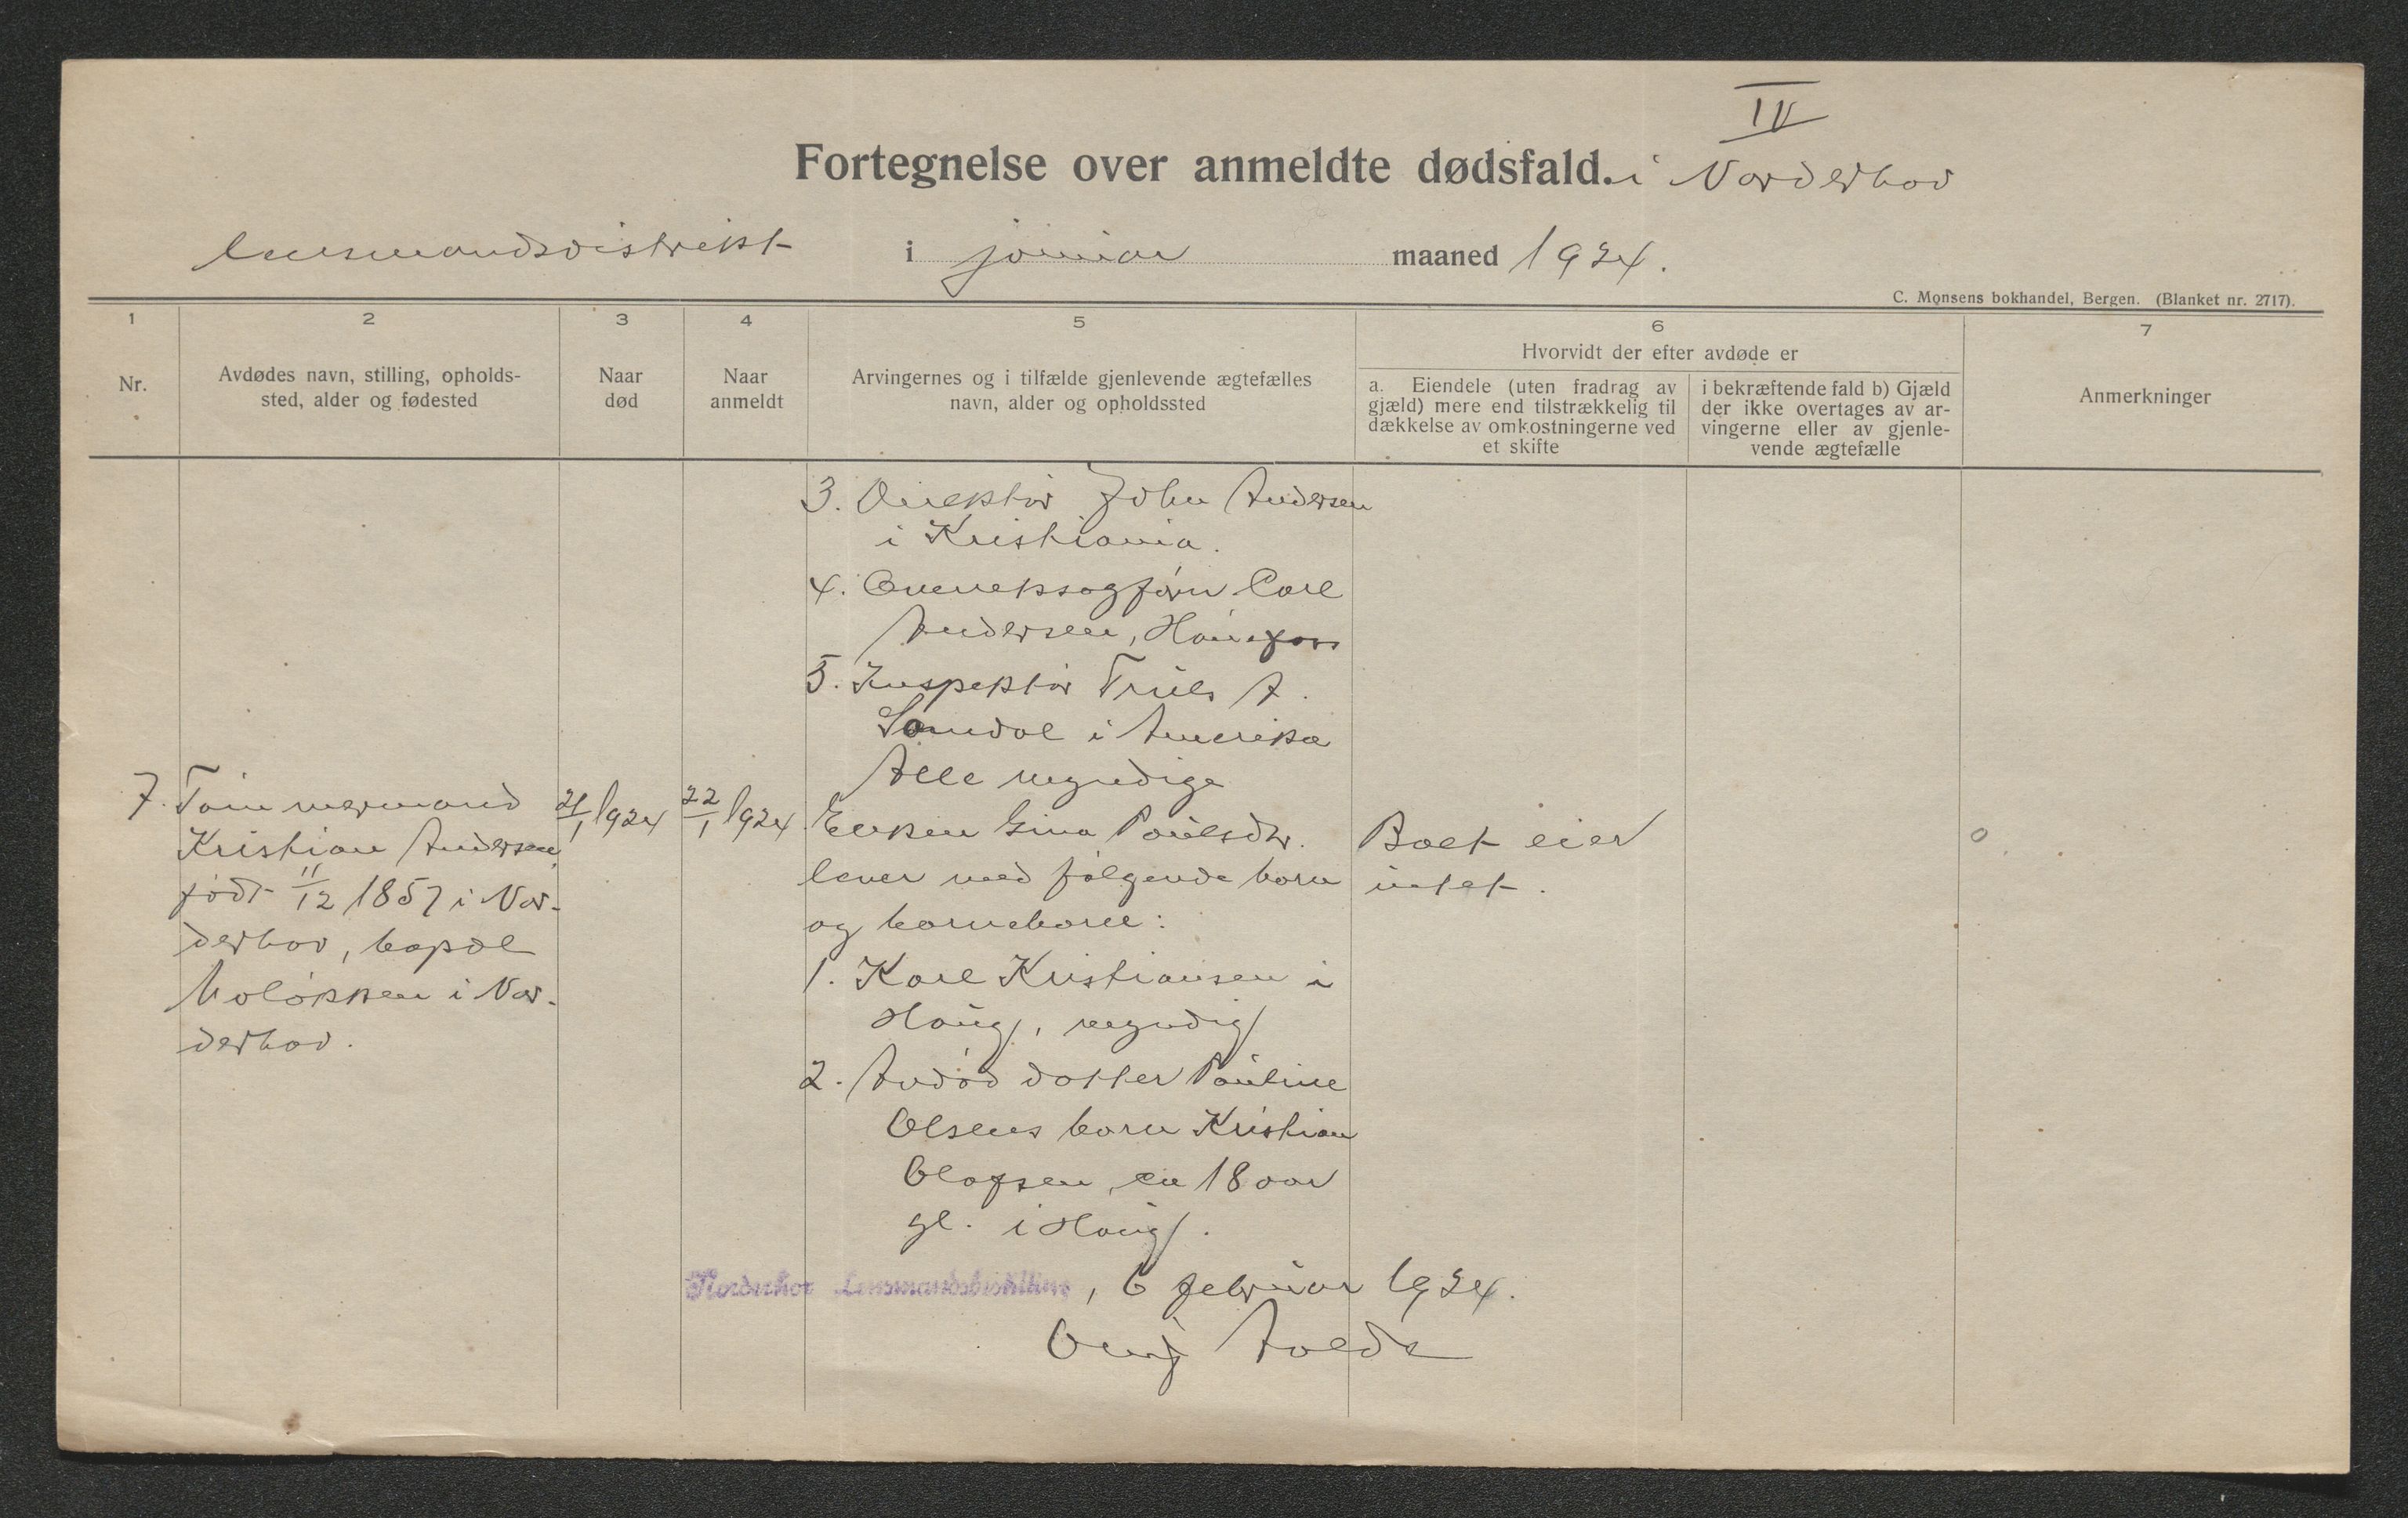 IV
Fortegnelse over anmeldte dødsfald. i Norderhov
lensmandsdistrikt i januar maaned 1924.
C. Monsens bokhandel, Bergen. (Blanket nr. 2717).
1 2 3 4 5 6 7
Nr.
Avdødes navn, stilling, opholds-
sted, alder og fødested
Naar
død
Naar
anmeldt
Arvingernes og i tilfælde gjenlevende ægtefælles
navn, alder og opholdssted
Hvorvidt der efter avdøde er
a. Eiendele (uten fradrag av
gjæld) mere end tilstrækkelig til
dækkelse av omkostningerne ved
et skifte
i bekræftende fald b) Gjæld
der ikke overtages av ar-
vingerne eller av gjenle-
vende ægtefælle
Anmerkninger
3. Direktør John Andersen
i Kristiania.
4. Overretssagfører Carl
Andersen, Hønefoss
5. Inspektør Truls A.
Somdal i Amerika
Alle myndige
7. Tømmermand
Kristian Andersen,
født 11/12 1857 i Nor-
derhov, bopæl
Moløkken i Nor-
derhov.
21/1 1924
22/1 1924
Enken Gina Paulsdtr.
lever med følgende barn
og barnebarn:
1. Karl Kristiansen i
Haug, myndig
2. Avdød datter Pauline
Olsens barn Kristian
Olafsen, ca 18 aar
gl. i Haug.
Boet eier
intet.
0
Norderhov Lensmandsbestilling, 6 februar 1924.